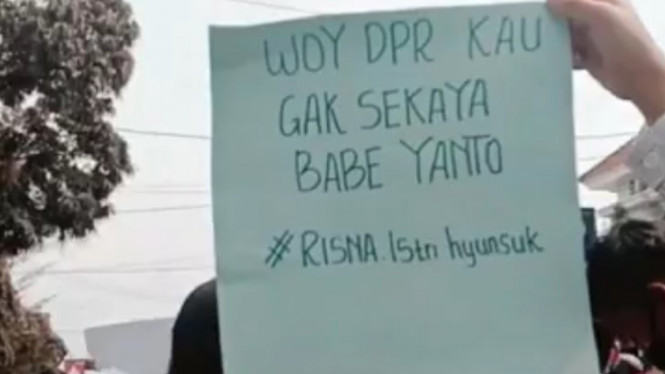 WOY DPR KAU
GAK SEKAYA
BABE YANTO
#RISNA.Istri hyunsuk